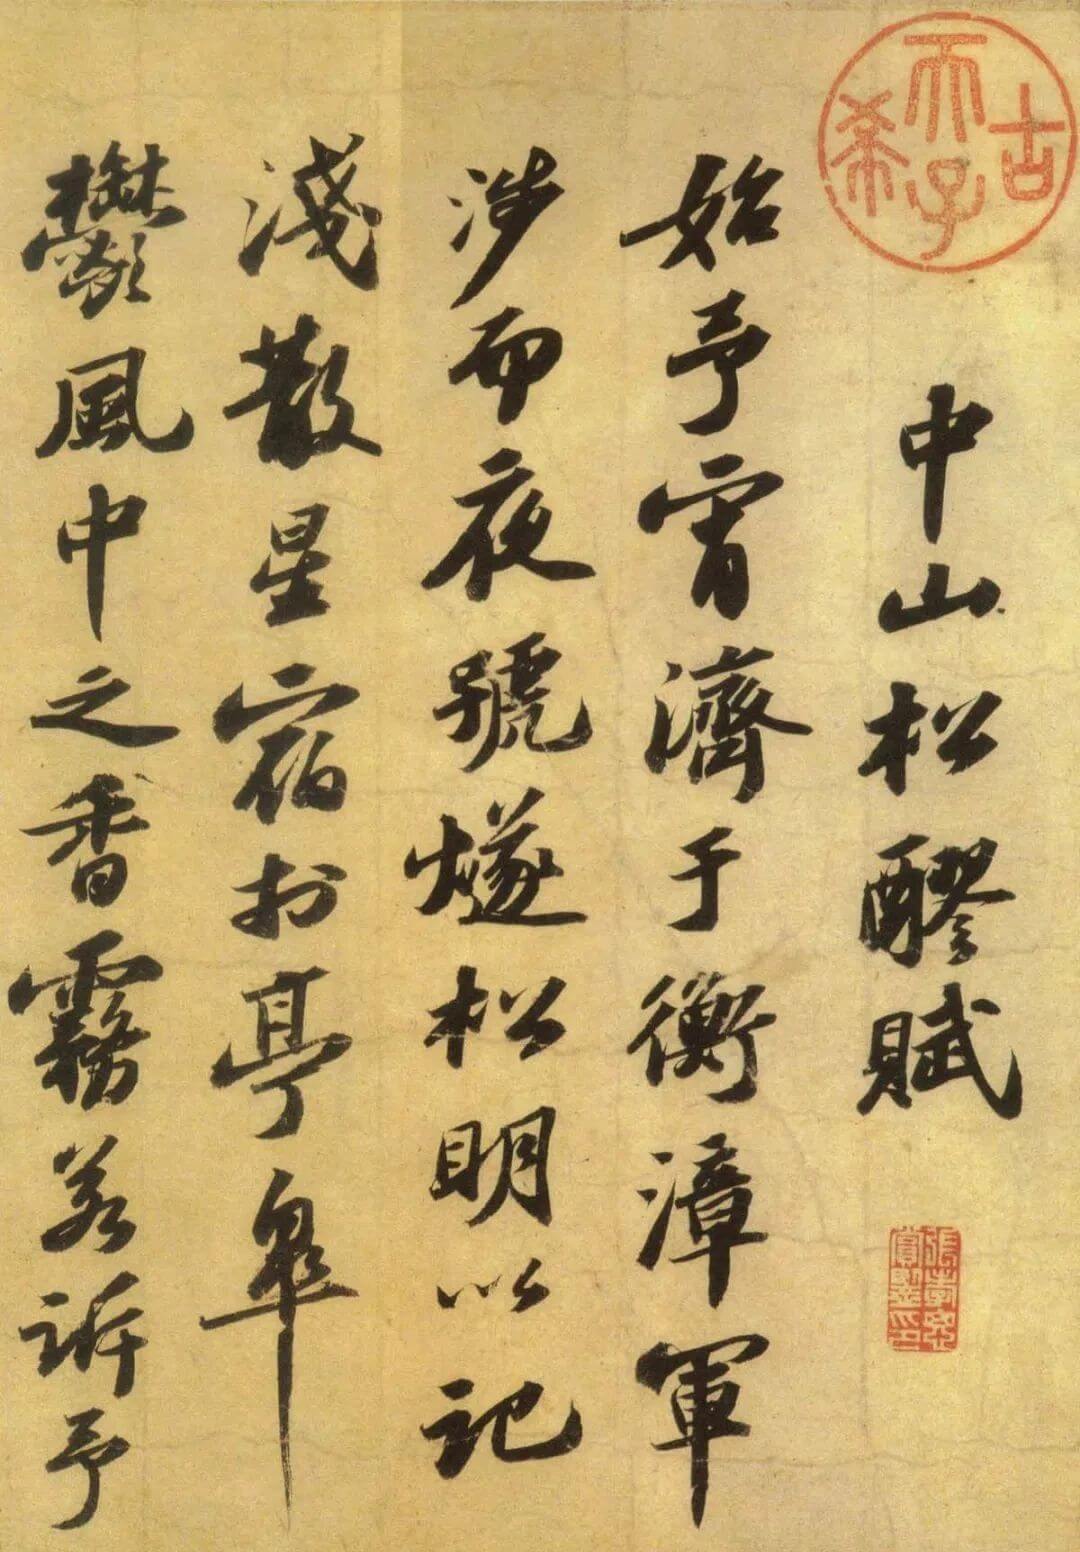 古希天子
中山松醪賦
張孝思賞鑒印
始予宵濟于衡漳軍
涉而夜號燧松明以記
淺散星宿於亭皐
鬱風中之香霧若訴予